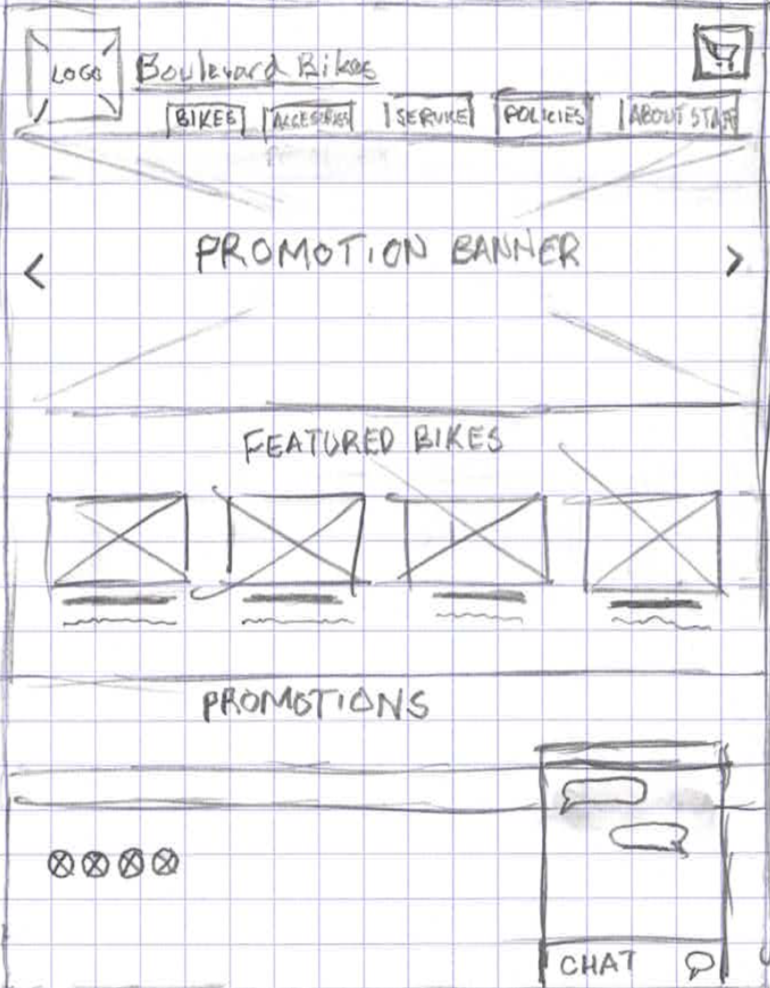 LOGO
Boulevard Bikes
BIKES ACCESORIES SERVICE POLICIES ABOUT STAFF
< PROMOTION BANNER >
FEATURED BIKES
PROMOTIONS
CHAT